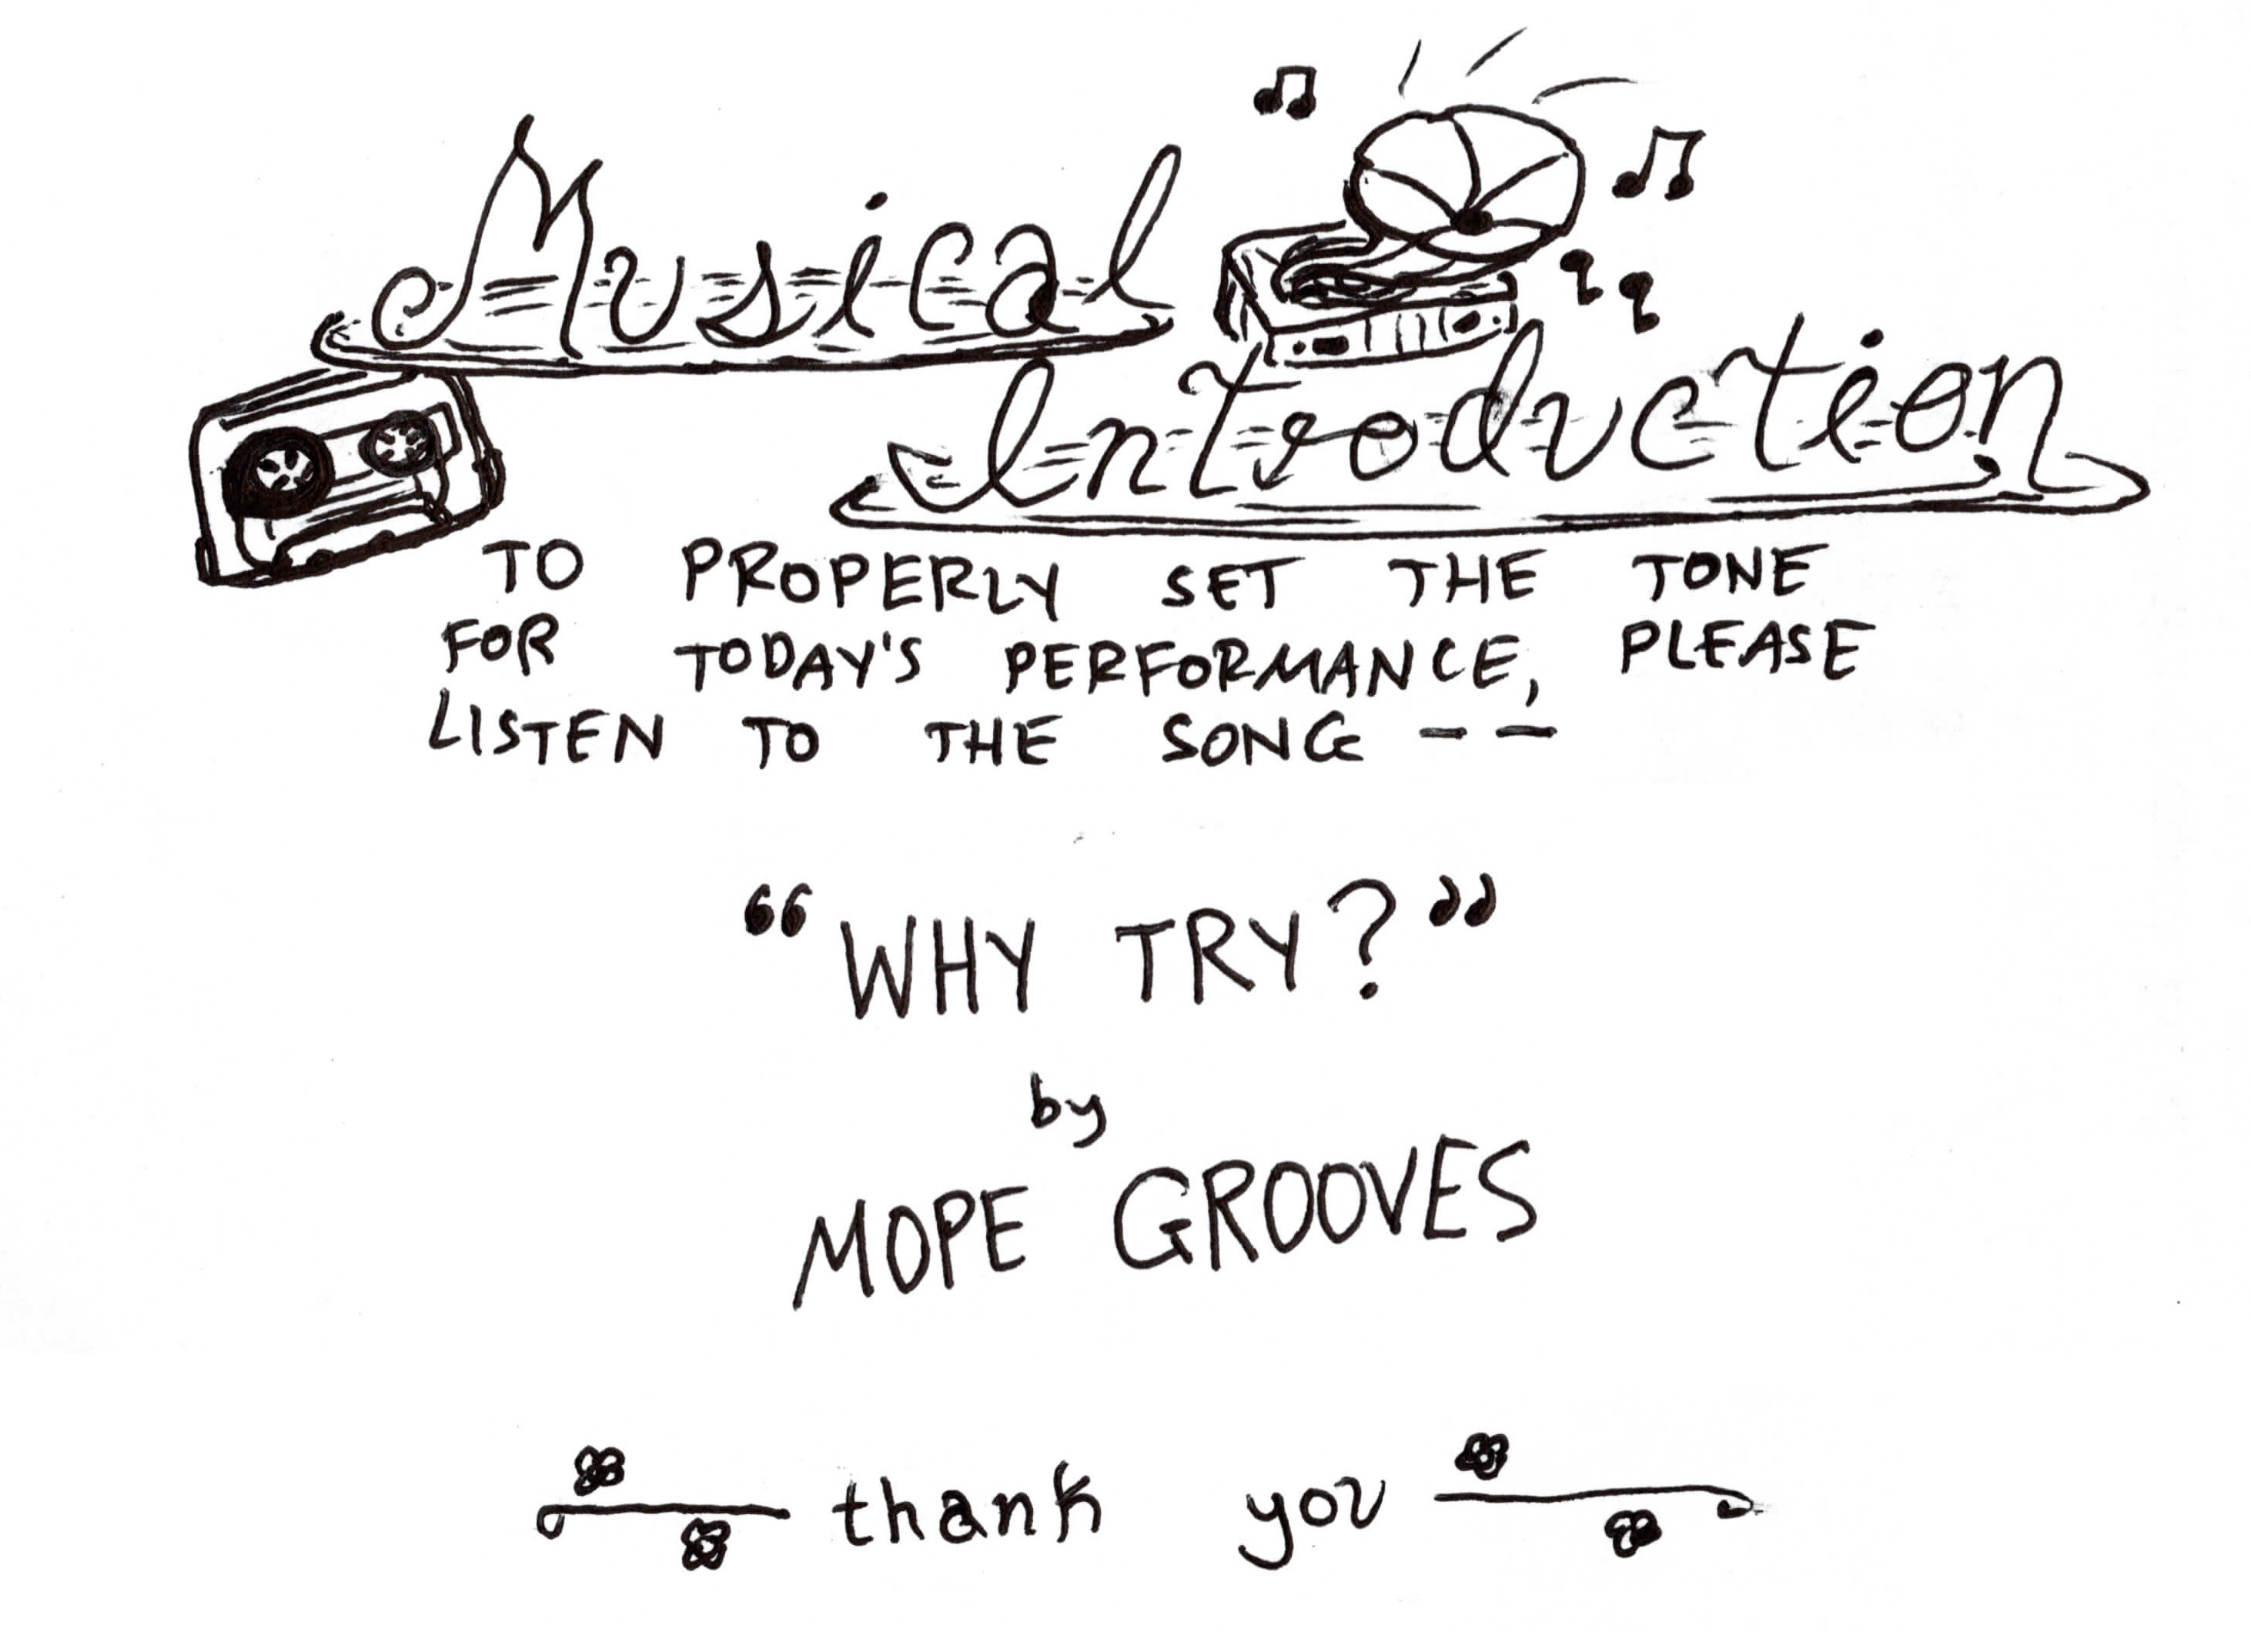 Musical
Introduction
TO PROPERLY SET THE TONE
FOR TODAY'S PERFORMANCE, PLEASE
LISTEN TO THE SONG --
“WHY TRY?”
by
MOPE GROOVES
thank you